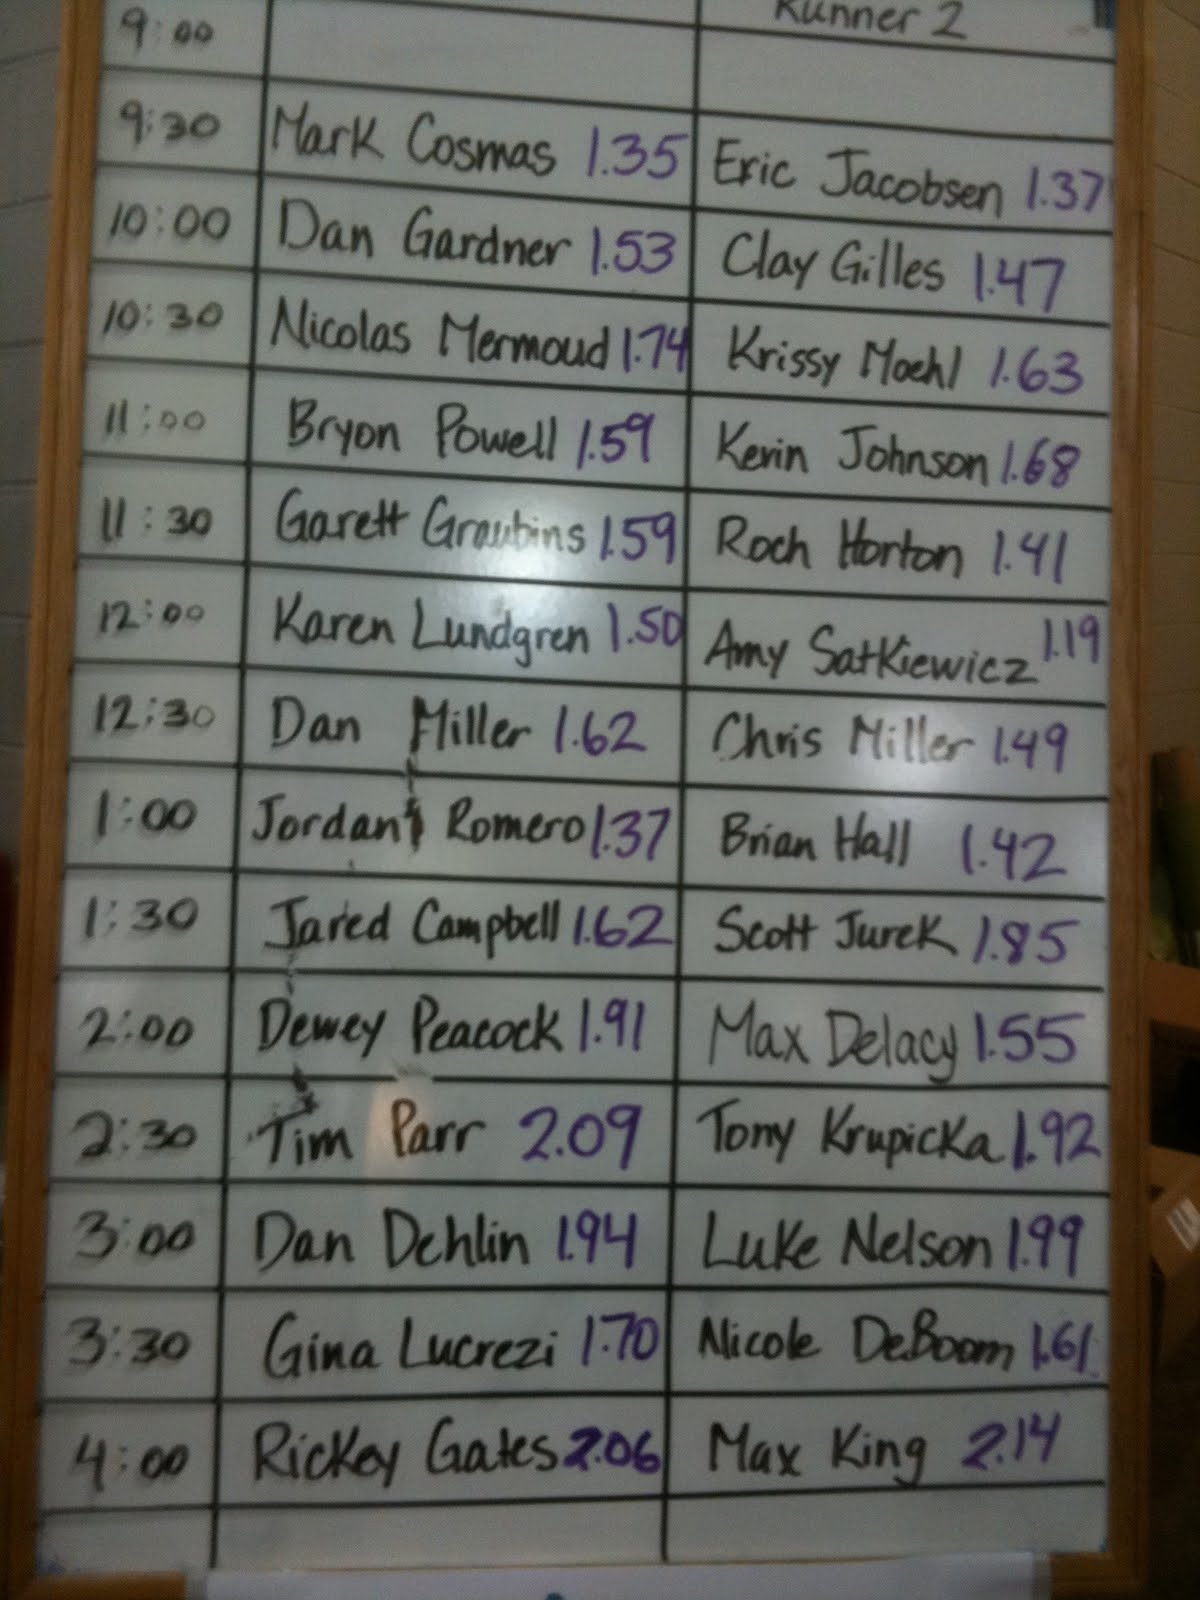 Runner 2
9:00
9:30 Mark Cosmas 1.35 Eric Jacobsen 1.37
10:00 Dan Gardner 1.53 Clay Gilles 1.47
10:30 Nicolas Mermoud 1.74 Krissy Moehl 1.63
11:00 Bryon Powell 1.59 Kevin Johnson 1.68
11:30 Garett Graubins 1.59 Roch Horton 1.41
12:00 Karen Lundgren 1.50 Amy Satkiewicz 1.19
12:30 Dan Miller 1.62 Chris Miller 1.49
1:00 Jordan Romero 1.37 Brian Hall 1.42
1:30 Jared Campbell 1.62 Scott Jurek 1.85
2:00 Dewey Peacock 1.91 Max Delacy 1.55
2:30 Tim Parr 2.09 Tony Krupicka 1.92
3:00 Dan Dehlin 1.94 Luke Nelson 1.99
3:30 Gina Lucrezi 1.70 Nicole DeBoom 1.61
4:00 Rickey Gates 2.06 Max King 2.14